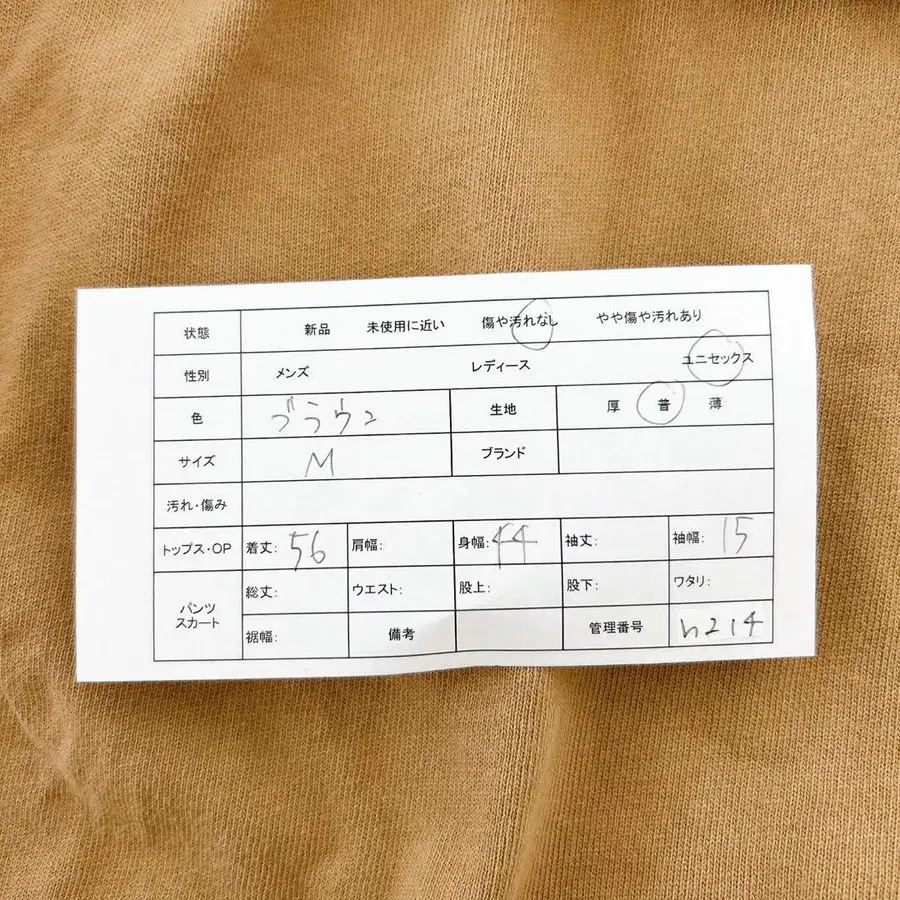 状態 新品 未使用に近い 傷や汚れなし やや傷や汚れあり
性別 メンズ レディース ユニセックス
色 ブラウン 生地 厚 普 薄
サイズ M ブランド
汚れ・傷み
トップス・OP 着丈: 56 肩幅: 身幅: 44 袖丈: 袖幅: 15
パンツ スカート 総丈: ウエスト: 股上: 股下: ワタリ:
裾幅: 備考 管理番号 h214